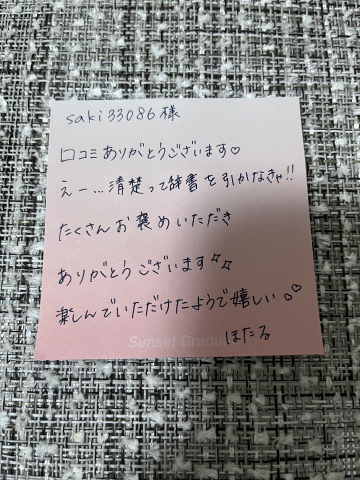 saki33086様
口コミありがとうございます♡
えー…清楚って辞書を引かなきゃ!!
たくさんお褒めいただき
ありがとうございます✨
楽しんでいただけたようで嬉しい♡
Sunset Gradu
ほたる